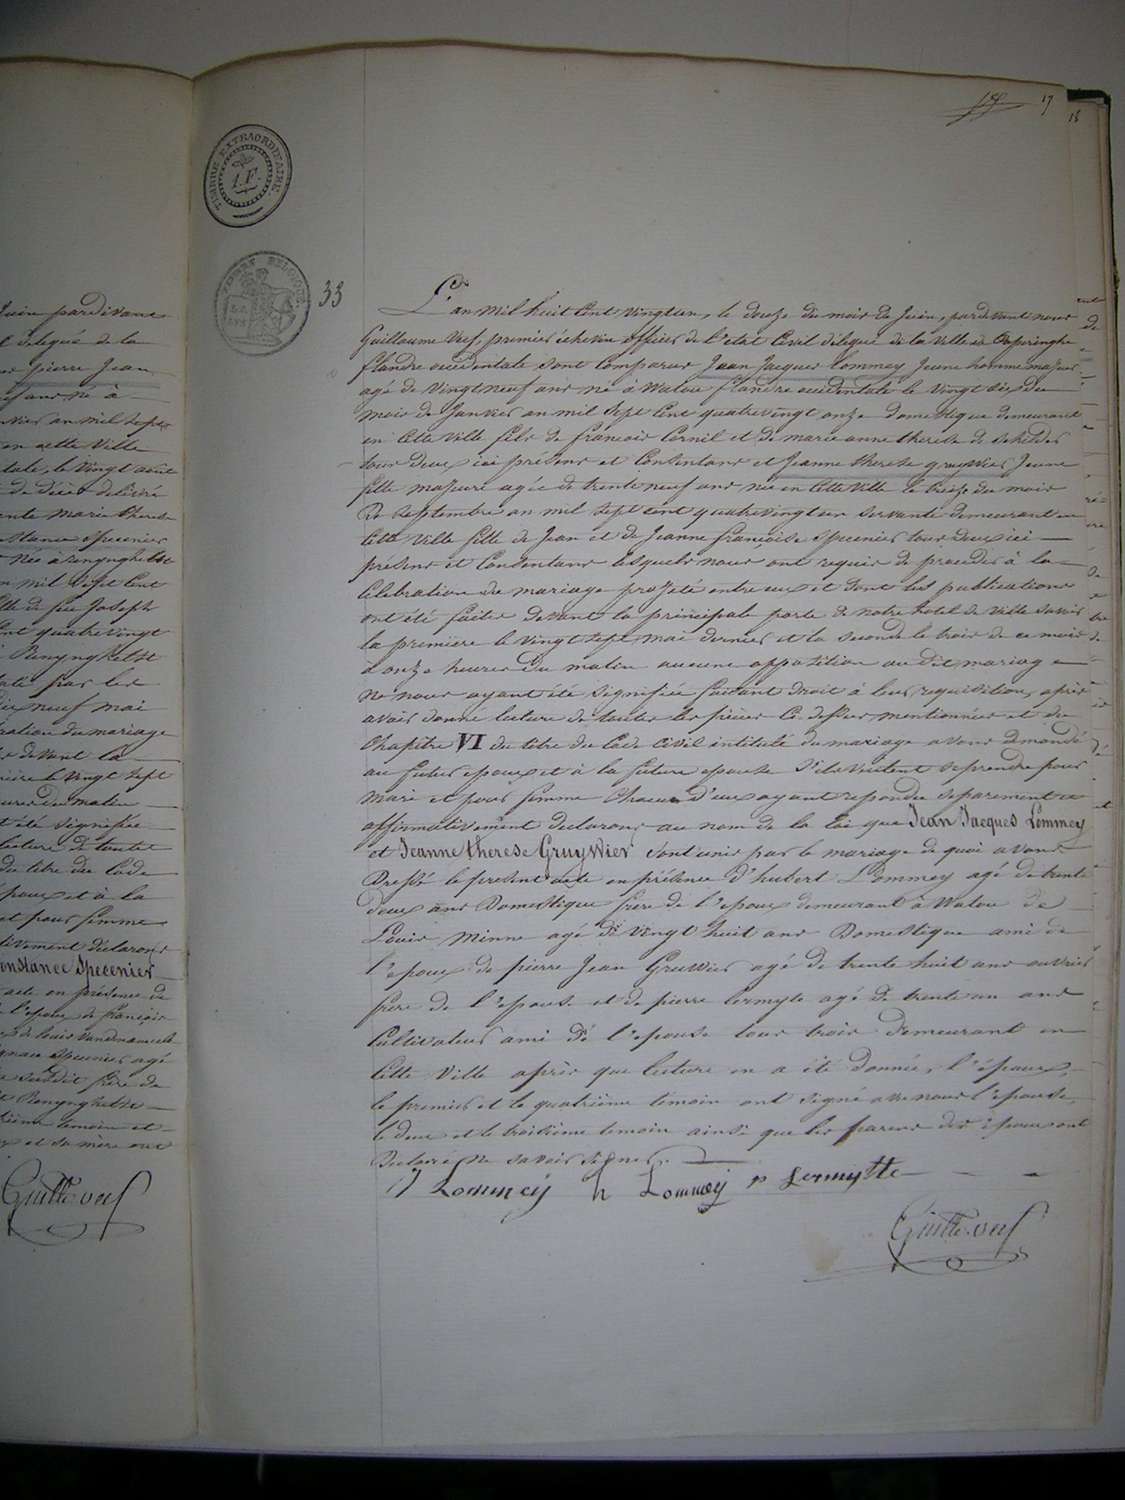 uin pardevant
délégué de la
pierre Jean
ans né à
nvier an mil sept
en cette Ville
tale, le Vingt août
de décès délivré
ente marie therese
stance Specenier
née à renynghelst
n mil Sept Cent
lle de feu Joseph
nt quatrevingt
Renynghelst
ix neuf mai
ration du mariage
devant la
ière le Vingt Sept
eures du matin
t été signifiée
lecture de toutes
du titre du Code
poux et à la
et pour femme
tivement declarons
onstance Specenier
acte en présence de
l'epoux de françois
Specenier agé
susdit frère de
Renynghelst
ième temoin et
et sa mère ont
Guille. vuf
TIMBRE EXTRAORDINAIRE
1. F.
17
18
33
L'an mil huit Cent Vingt un, le douze du mois de Juin, pardevant nous
Guillaume Vuf, premier échevin officier de l'etat Civil délégué de la Ville de Poperinghe
flandre occidentale sont Comparus Jean Jacques Lommey Jeune homme majeur
agé de Vingt neuf ans né à Watou flandre occidentale le Vingt dix du
mois de Janvier an mil Sept Cent quatrevingt onze domestique demeurant
en Cette Ville fils de françois Cornil et de marie anne therese de
tous deux ici présens et Consentans et Jeanne therese gruywier Jeune
fille majeure agée de trente neuf ans née en Cette Ville le treize du mois
de Septembre an mil Sept Cent quatrevingt un Servante demeurant en
Cette Ville fille de Jean et de Jeanne françoise Specenier tous deux ici
présens et Consentans lesquels nous ont requis de proceder à la
Celebration du mariage projeté entre eux et dont les publications
ont été faites devant la principale porte de notre hotel de Ville Savoir
la première le Vingt Sept mai dernier et la Seconde le trois de ce mois
à onze heures du matin aucune opposition au dit mariage
ne nous ayant été Signifiée faisant droit à leur requisition, après
avoir donné lecture de toutes les pièces Ci-dessus mentionnées et du
Chapitre VI du titre du Code Civil intitulé du mariage avons demandé
au futur epoux et à la future epouse S'ils veulent Se prendre pour
mari et pour femme Chacun d'eux ayant repondu Separement et
affirmativement declarons au nom de la loi que Jean Jacques Lommey
et Jeanne therese Gruywier Sont unis par le mariage de quoi avons
Dressé le present acte en présence d'hubert Lommey agé de trente
deux ans Domestique frère de l'epoux demeurant à Watou de
Louis Minne agé de Vingt huit ans Domestique ami de
l'epoux de pierre Jean Gruwier agé de trente huit ans ouvrier
frère de l'epouse et de pierre Lermyte agé de trente un ans
Cultivateur ami de l'epouse tous trois demeurant en
Cette Ville après que lecture en a été donnée, l'époux,
le premier et le quatrième témoin ont Signé avec nous l'epouse,
le deux et le troisième temoin ainsi que les parens des epoux ont
Declaré ne Savoir Signer.
J Lommeij h Lommeij p Lermytte
Guille. vuf